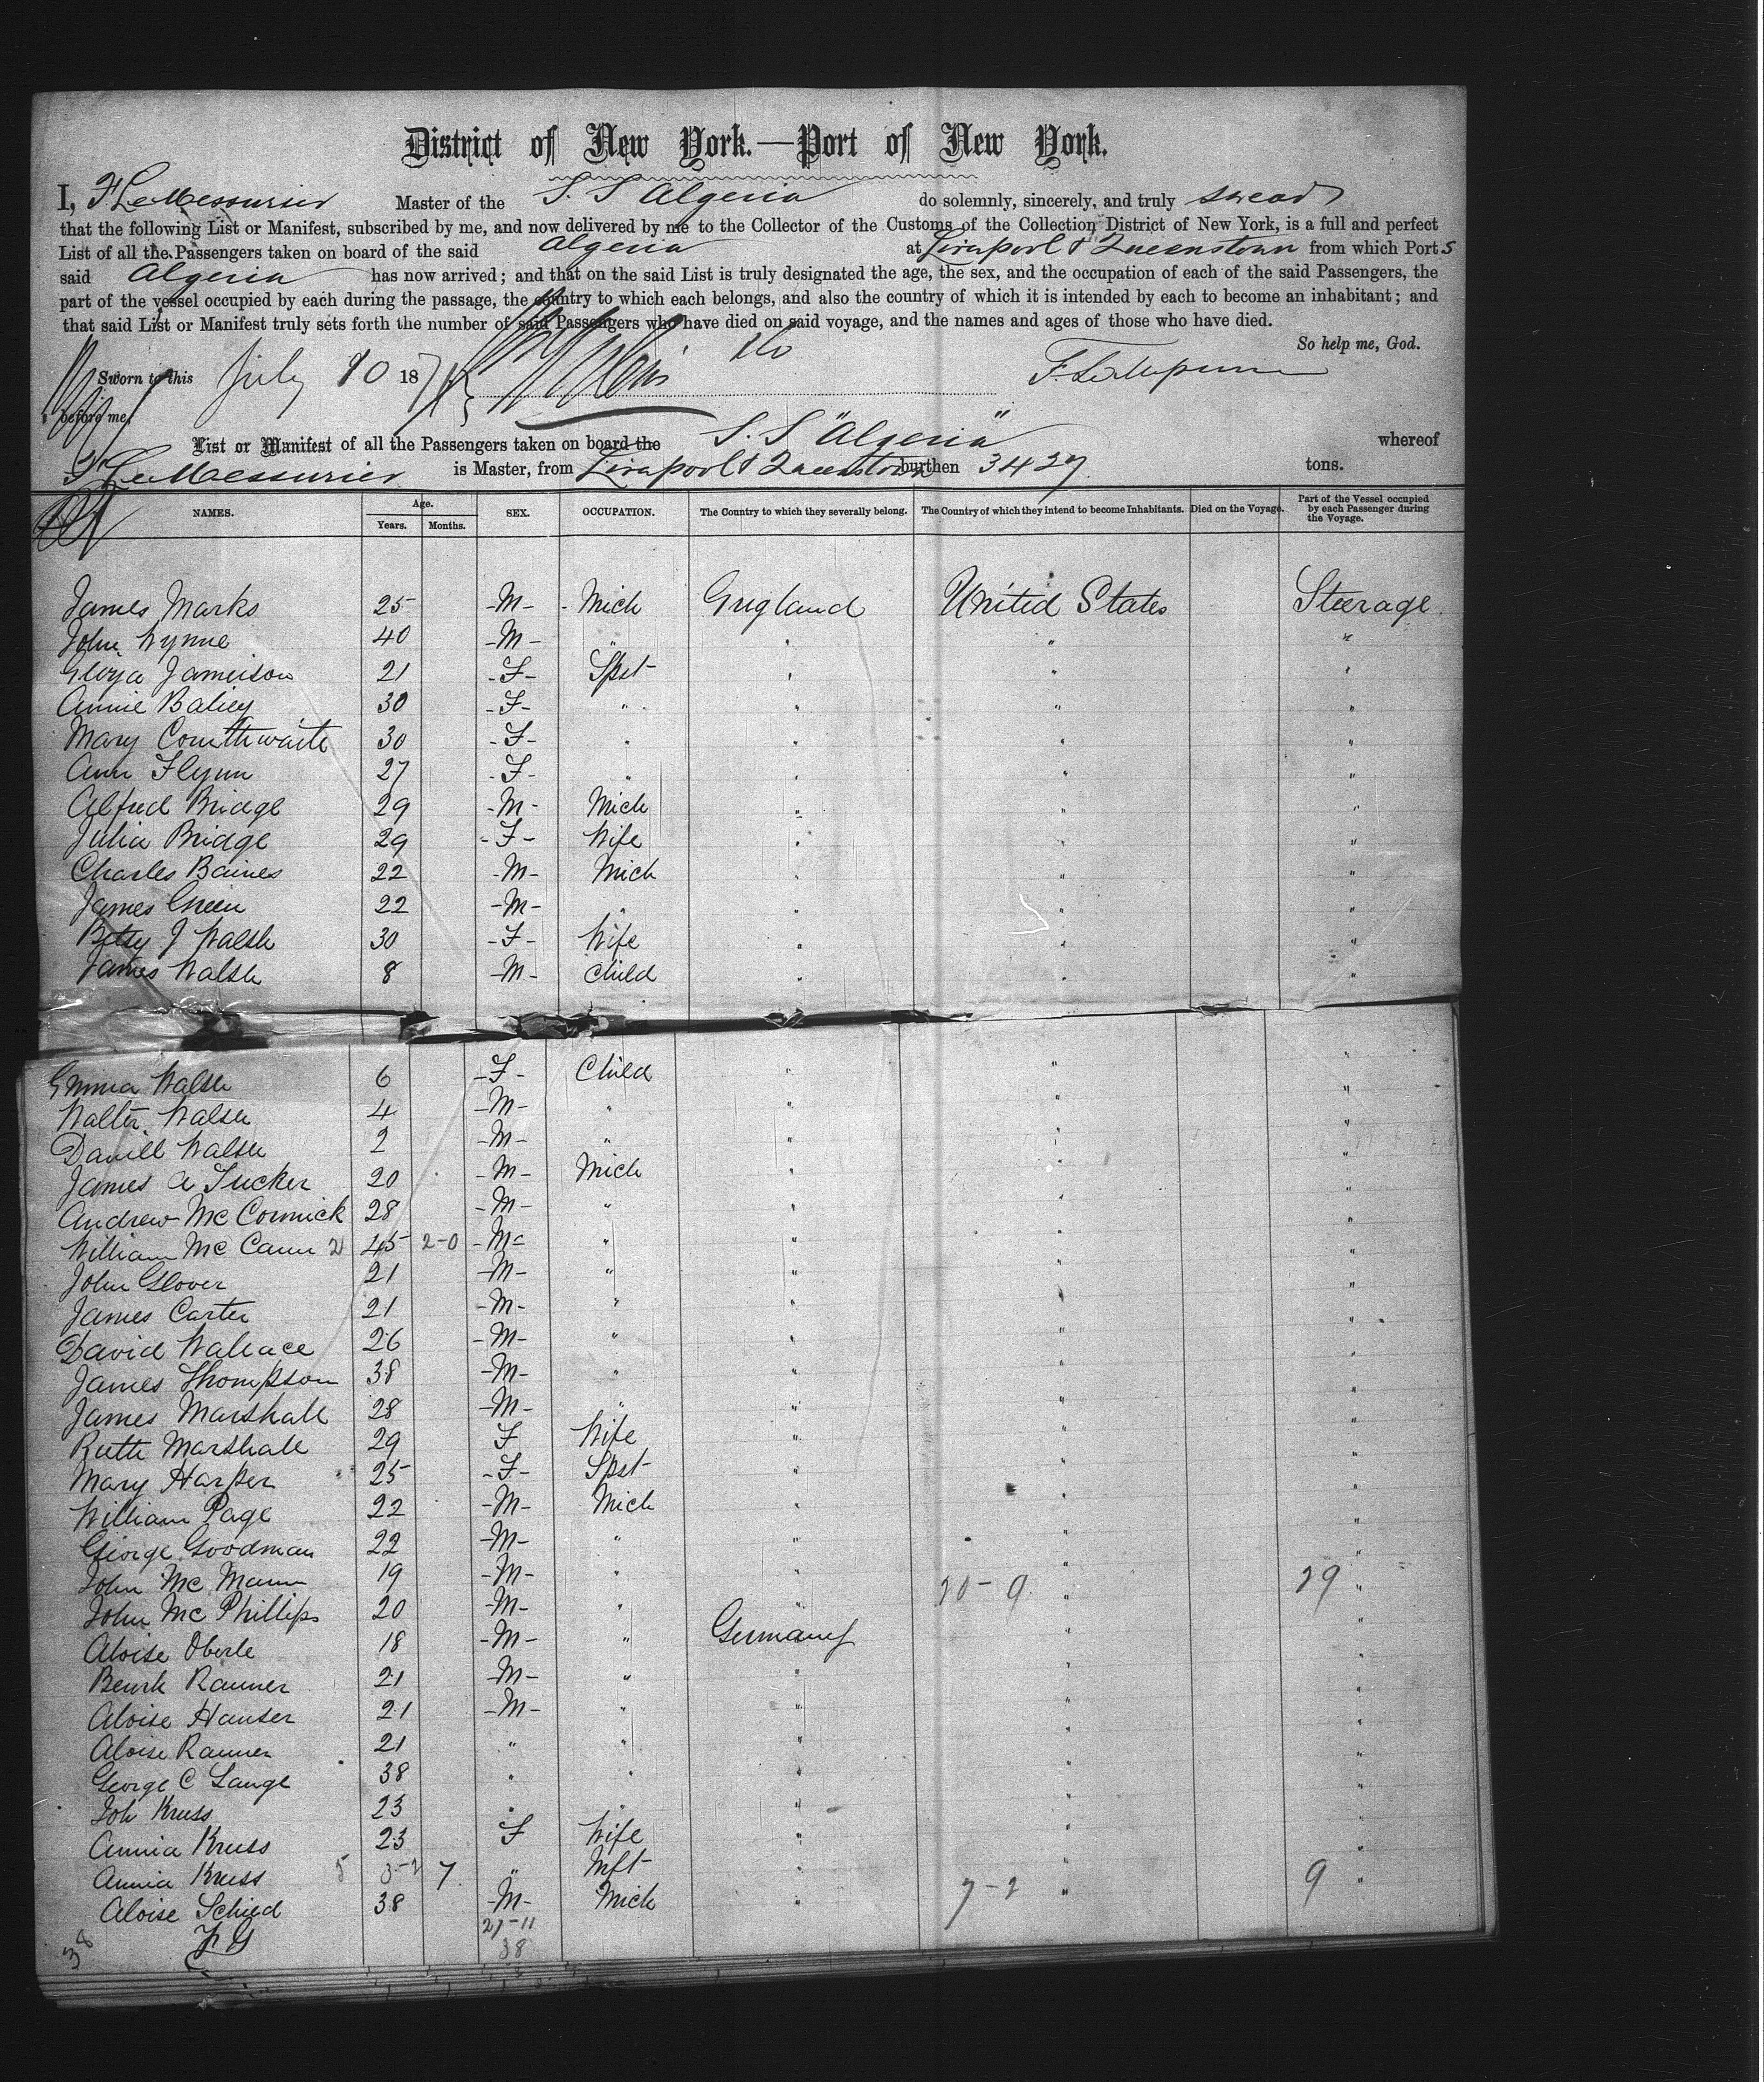 District of New York.—Port of New York.
I, F Le Messurier Master of the S. S Algeria do solemnly, sincerely, and truly swear
that the following List or Manifest, subscribed by me, and now delivered by me to the Collector of the Customs of the Collection District of New York, is a full and perfect
List of all the Passengers taken on board of the said Algeria at Liverpool & Queenstown from which Ports
said Algeria has now arrived; and that on the said List is truly designated the age, the sex, and the occupation of each of the said Passengers, the
part of the vessel occupied by each during the passage, the country to which each belongs, and also the country of which it is intended by each to become an inhabitant; and
that said List or Manifest truly sets forth the number of said Passengers who have died on said voyage, and the names and ages of those who have died.
So help me, God.
Sworn to this July 10 187
before me,
List or Manifest of all the Passengers taken on board the S. S "Algeria" whereof
F Le Messurier is Master, from Liverpool & Queenstown burthen 3427 tons.
NAMES. Age. Years. Months. SEX. OCCUPATION. The Country to which they severally belong. The Country of which they intend to become Inhabitants. Died on the Voyage. Part of the Vessel occupied by each Passenger during the Voyage.
James Marks 25 -M- Mich England United States Steerage
John Wynne 40 -M- " " " "
Jameison 21 -F- Spst " " "
Annie Baliey 30 -F- " " " "
Mary Counthwaite 30 -F- " " " "
Ann Flynn 27 -F- " " " "
Alfred Bridge 29 -M- Mich " " "
Julia Bridge 29 -F- Wife " " "
Charles Baines 22 -M- Mich " " "
James Green 22 -M- " " " "
Betsy J Walsh 30 -F- Wife " " "
James Walsh 8 -M- Child " " "
Emma Walsh 6 -F- Child " " "
Walter Walsh 4 -M- " " " "
Daniell Walsh 2 -M- " " " "
James A Tucker 20 -M- Mich " " "
Andrew Mc Cormick 28 -M- " " " "
William Mc Cann 2 45 2-0 -M- " " " "
John Glover 21 -M- " " " "
James Carter 21 -M- " " " "
David Wallace 26 -M- " " " "
James Thompson 38 -M- " " " "
James Marshall 28 -M- " " " "
Ruth Marshall 29 F Wife " " "
Mary Harper 25 -F- Spst " " "
William Page 22 -M- Mich " " "
George Goodman 22 -M- " " " "
John Mc Mann 19 -M- " " 20-9 " 29 "
John Mc Phillips 20 -M- " " " "
Aloise Oberle 18 -M- " Germany " "
Ranner 21 -M- " " " "
Aloise Hauser 21 -M- " " " "
Aloise Ranner 21 " " " " "
George C Lange 38 " " " " "
Joh Kruss 23 " " " " "
Annia Kruss 23 F Wife " " "
Annia Kruss 5 3-2 7 " Inft " " "
Aloise Schied 38 -M- Mich " 7-2 " 9 "
27-11
38
38